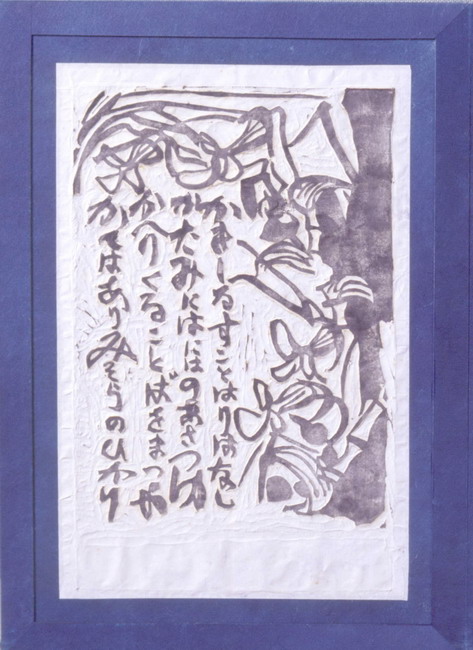 かきしるすことはりはなし
かたみにはほのあさつげ
かへりくることばをまつや
かてはありみそらのひかり